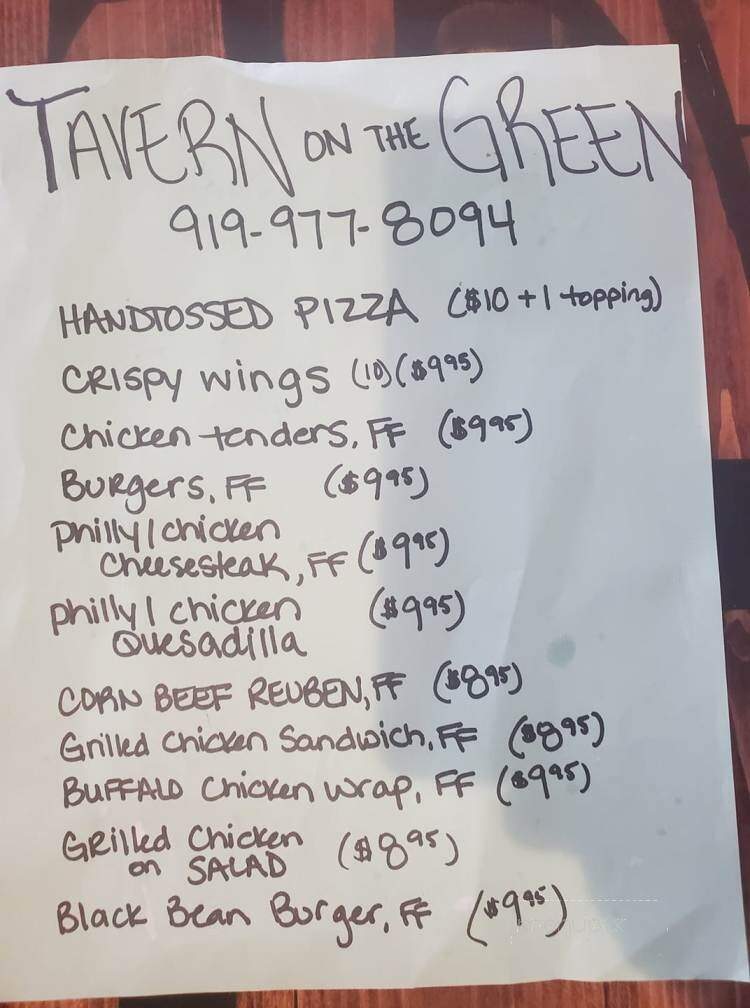 TAVERN ON THE GREEN
919-977-8094
HANDTOSSED PIZZA ($10 + 1 topping)
CRISPY wings (10) ($9.95)
Chicken tenders, FF ($9.95)
Burgers, FF ($9.95)
philly / chicken
cheesesteak, FF ($9.95)
philly / chicken ($9.95)
Quesadilla
CORN BEEF REUBEN, FF ($8.95)
Grilled Chicken Sandwich, FF ($8.95)
BUFFALO Chicken wrap, FF ($9.95)
GRilled Chicken ($8.95)
on SALAD
Black Bean Burger, FF ($9.95)